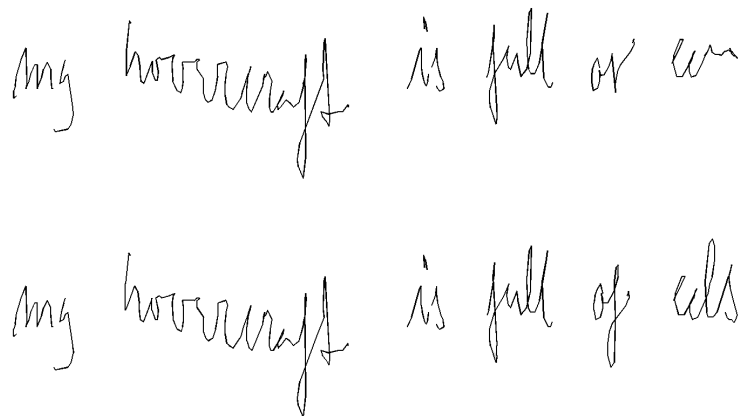 my hovercraft is full of
my hovercraft is full of eels